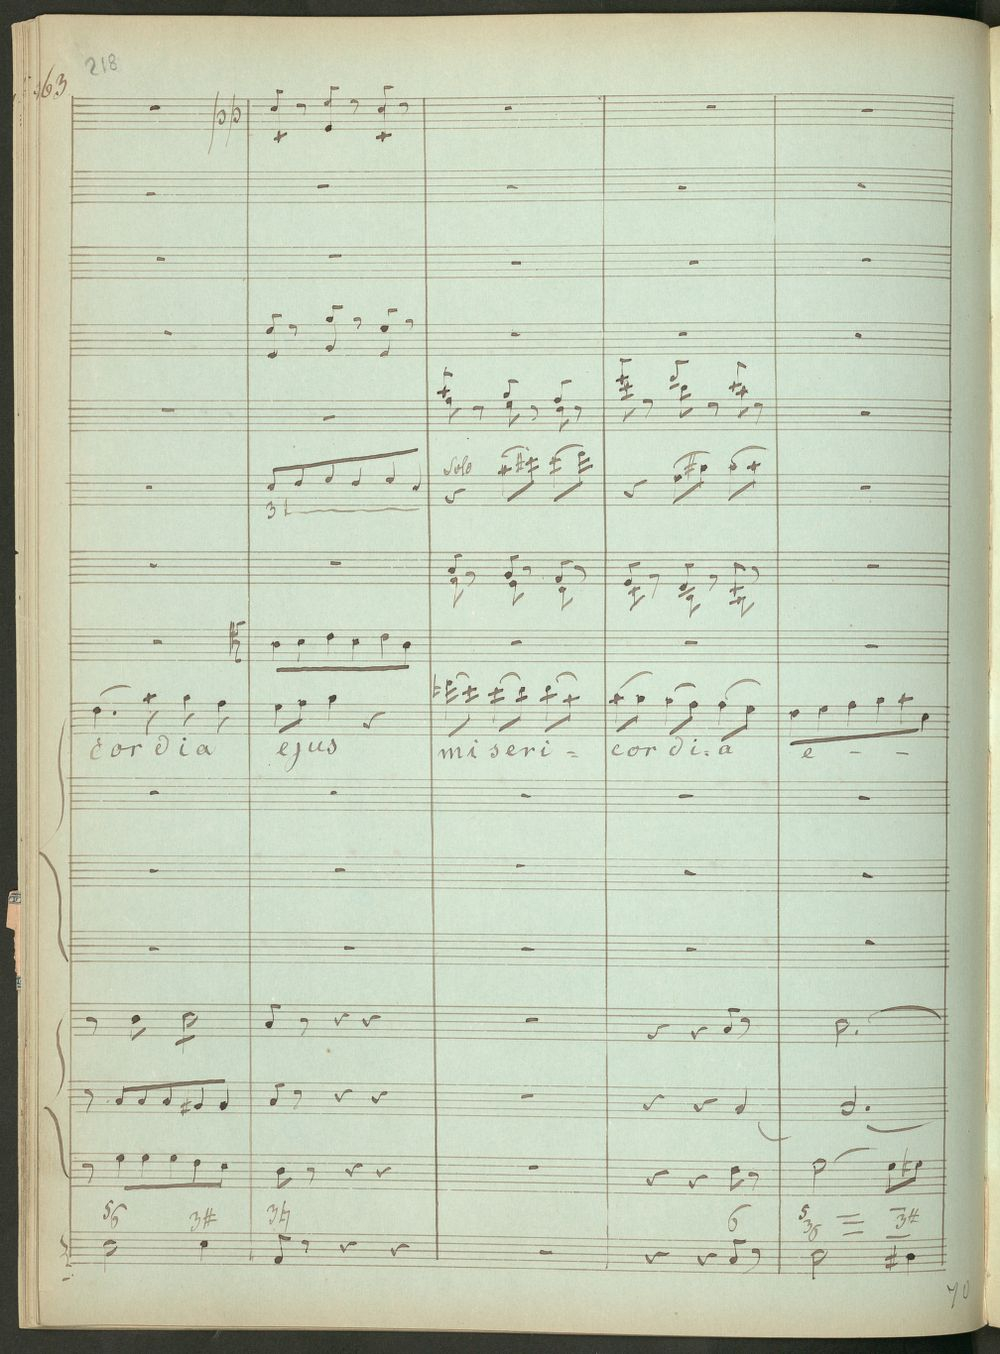 218
163
pp
Solo
3
cordia ejus miseri = cordi=a e - -
5 6 3# 3♮ 6 5 3 6 = 3#
70